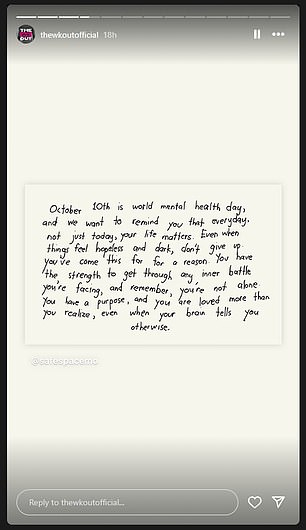 THE
OUT
thewkoutofficial 18h
October 10th is world mental health day,
and we want to remind you that everyday.
not just today, your life matters. Even when
things feel hopeless and dark, don't give up
you've come this far for a reason. You have
the strength to get through any inner battle
you're facing, and remember, you're not alone
You have a purpose, and you are loved more than
you realize, even when your brain tells you
otherwise.
@safespacemo
Reply to thewkoutofficial...